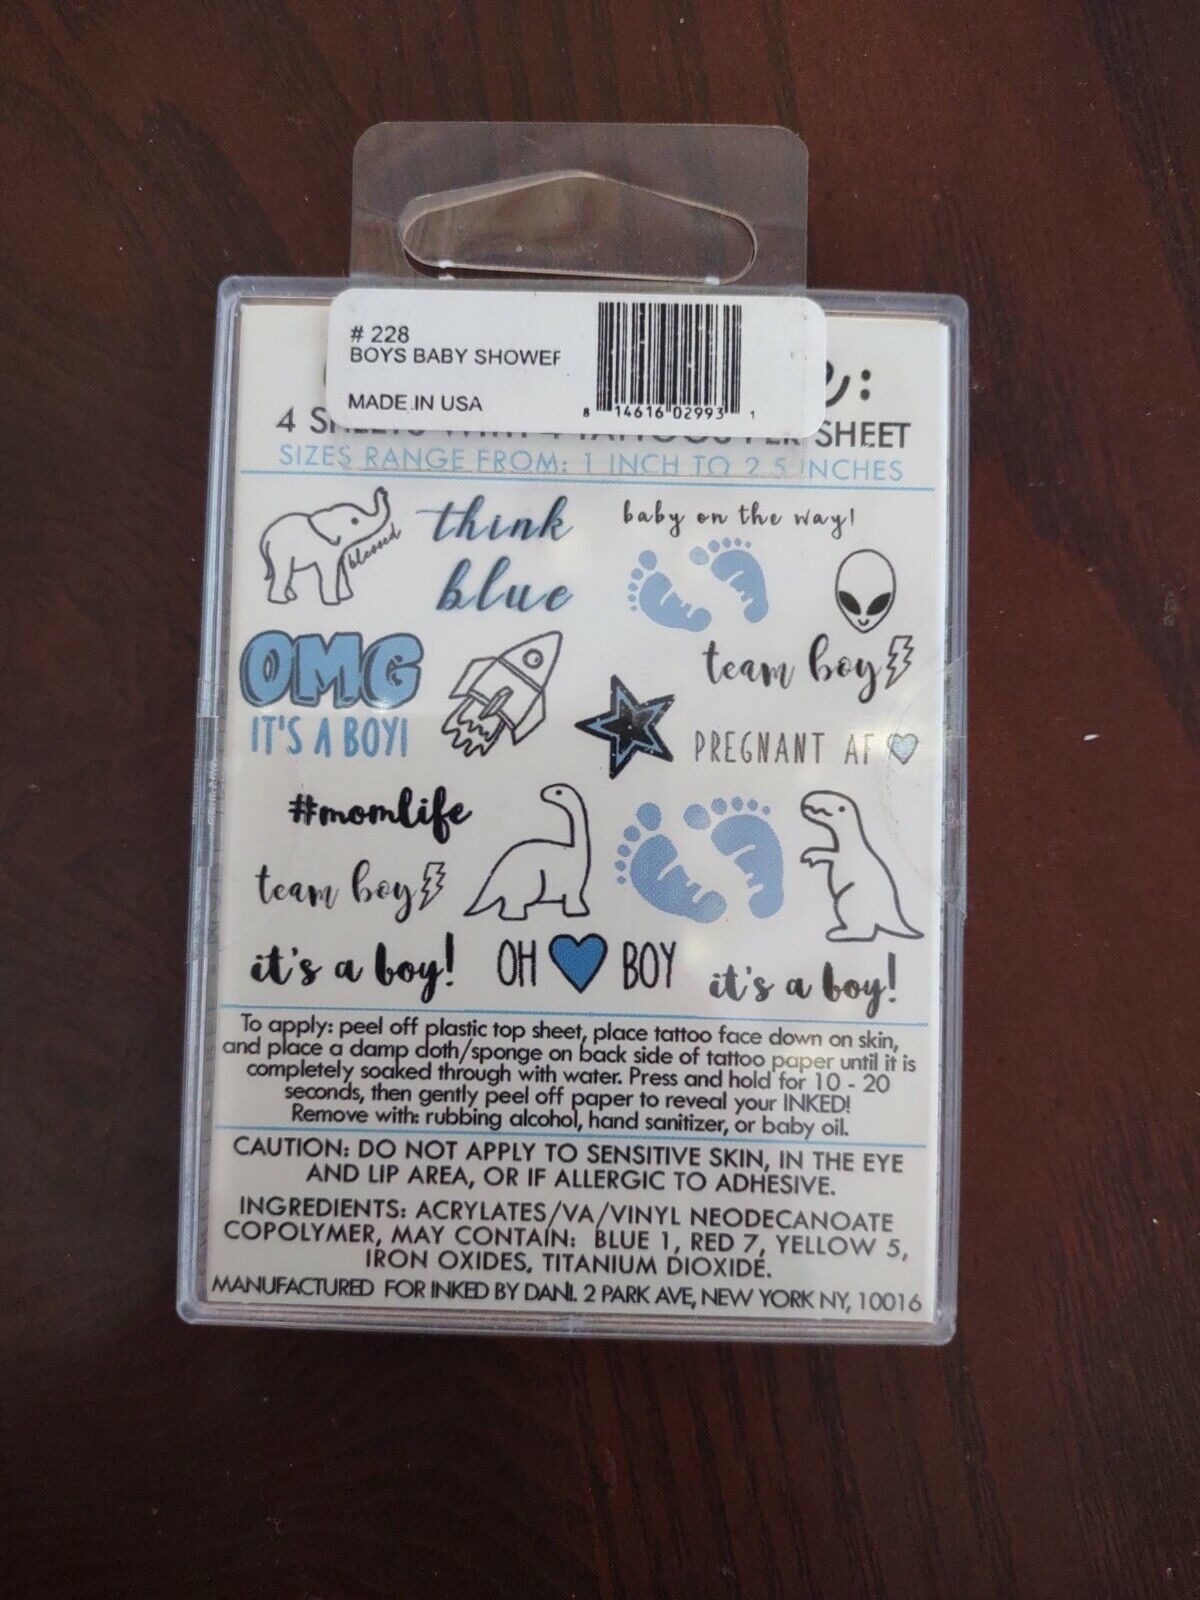 # 228
BOYS BABY SHOWER
MADE IN USA
8 14616 02993 1
4 SHEETS WITH 4 TATTOOS PER SHEET
SIZES RANGE FROM: 1 INCH TO 2.5 INCHES
blessed
think
blue
baby on the way!
OMG
IT'S A BOY!
team boy
PREGNANT AF
#momlife
team boy
it's a boy!
OH BOY
it's a boy!
To apply: peel off plastic top sheet, place tattoo face down on skin,
and place a damp cloth/sponge on back side of tattoo paper until it is
completely soaked through with water. Press and hold for 10 - 20
seconds, then gently peel off paper to reveal your INKED!
Remove with: rubbing alcohol, hand sanitizer, or baby oil.
CAUTION: DO NOT APPLY TO SENSITIVE SKIN, IN THE EYE
AND LIP AREA, OR IF ALLERGIC TO ADHESIVE.
INGREDIENTS: ACRYLATES/VA/VINYL NEODECANOATE
COPOLYMER, MAY CONTAIN: BLUE 1, RED 7, YELLOW 5,
IRON OXIDES, TITANIUM DIOXIDE.
MANUFACTURED FOR INKED BY DANI. 2 PARK AVE, NEW YORK NY, 10016